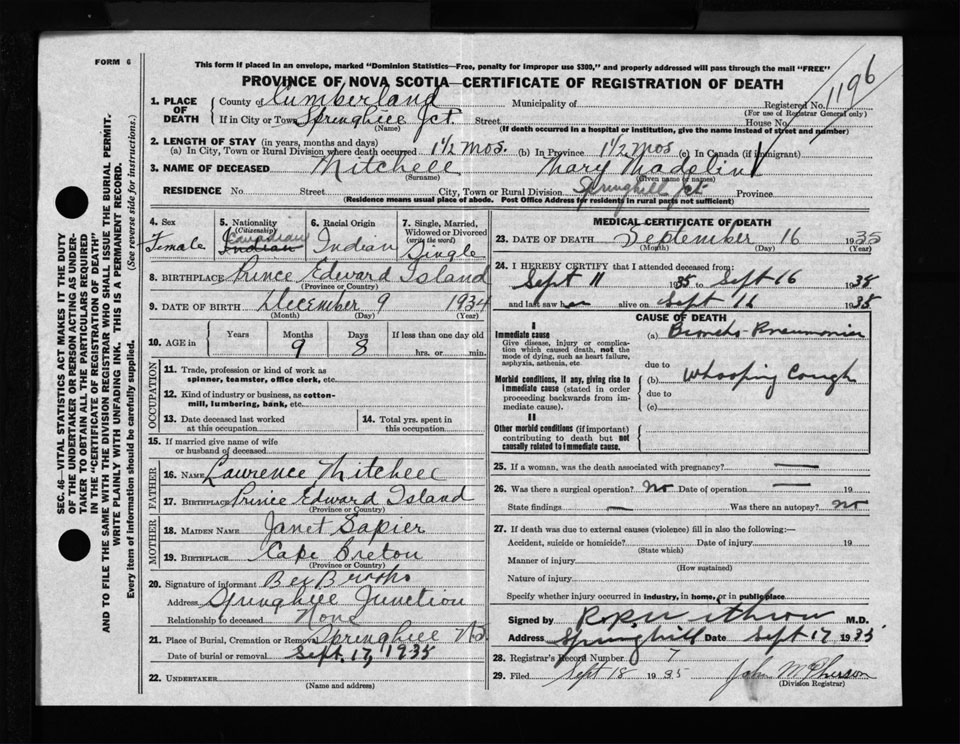 FORM 6
This form if placed in an envelope, marked "Dominion Statistics—Free, penalty for improper use $300," and properly addressed will pass through the mail "FREE"
PROVINCE OF NOVA SCOTIA—CERTIFICATE OF REGISTRATION OF DEATH
1196
SEC. 46—VITAL STATISTICS ACT MAKES IT THE DUTY
OF THE UNDERTAKER OR PERSON ACTING AS UNDER-
TAKER TO OBTAIN ALL THE PARTICULARS REQUIRED
IN THE "CERTIFICATE OF REGISTRATION OF DEATH"
AND TO FILE THE SAME WITH THE DIVISION REGISTRAR WHO SHALL ISSUE THE BURIAL PERMIT.
WRITE PLAINLY WITH UNFADING INK. THIS IS A PERMANENT RECORD.
Every item of information should be carefully supplied. (See reverse side for instructions.)
1. PLACE OF DEATH County of Cumberland Municipality of Registered No.
(For use of Registrar General only)
If in City or Town Springhill Jct. Street House No.
(Name) (If death occurred in a hospital or institution, give the name instead of street and number)
2. LENGTH OF STAY (in years, months and days)
(a) In City, Town or Rural Division where death occurred 1½ mos. (b) In Province 1½ mos (c) In Canada (if immigrant)
3. NAME OF DECEASED Mitchell Mary Madelin
(Surname) (Given name or names)
RESIDENCE No. Street City, Town or Rural Division Springhill Jct. Province
(Residence means usual place of abode. Post Office Address for residents in rural parts not sufficient)
4. Sex Female
5. Nationality (Citizenship) Indian Canadian
6. Racial Origin Indian
7. Single, Married, Widowed or Divorced (write the word) Single
8. BIRTHPLACE Prince Edward Island
(Province or Country)
9. DATE OF BIRTH December 9 1934
(Month) (Day) (Year)
10. AGE in Years Months 9 Days 8 If less than one day old hrs. or min.
OCCUPATION
11. Trade, profession or kind of work as spinner, teamster, office clerk, etc.
12. Kind of industry or business, as cotton-mill, lumbering, bank, etc.
13. Date deceased last worked at this occupation
14. Total yrs. spent in this occupation
15. If married give name of wife or husband of deceased
FATHER
16. NAME Lawrence Mitchell
17. BIRTHPLACE Prince Edward Island
(Province or Country)
MOTHER
18. MAIDEN NAME Janet Sapier
19. BIRTHPLACE Cape Breton
(Province or Country)
20. Signature of informant Brooks
Address Springhill Junction
Relationship to deceased None
21. Place of Burial, Cremation or Removal Springhill N.S.
Date of burial or removal Sept. 17, 1935
22. UNDERTAKER
(Name and address)
MEDICAL CERTIFICATE OF DEATH
23. DATE OF DEATH September 16 1935
(Month) (Day) (Year)
24. I HEREBY CERTIFY that I attended deceased from:
Sept 11 1935 to Sept 16 1935
and last saw her alive on Sept 16 1935
CAUSE OF DEATH
I
Immediate cause
Give disease, injury or complication which caused death, not the mode of dying, such as heart failure, asphyxia, asthenia, etc
(a) Broncho-Pneumonia
due to
Morbid conditions, if any, giving rise to immediate cause (stated in order proceeding backwards from immediate cause).
(b) Whooping Cough
due to
(c)
II
Other morbid conditions (if important) contributing to death but not causally related to immediate cause.
25. If a woman, was the death associated with pregnancy? —
26. Was there a surgical operation? No Date of operation — 19
State findings — Was there an autopsy? no
27. If death was due to external causes (violence) fill in also the following:—
Accident, suicide or homicide? Date of injury 19
(State which)
Manner of injury
(How sustained)
Nature of injury
Specify whether injury occurred in industry, in home, or in public place
Signed by M.D.
Address Springhill Date Sept 17 1935
28. Registrar's Record Number 7
29. Filed Sept 18 1935 John McPherson
(Division Registrar)